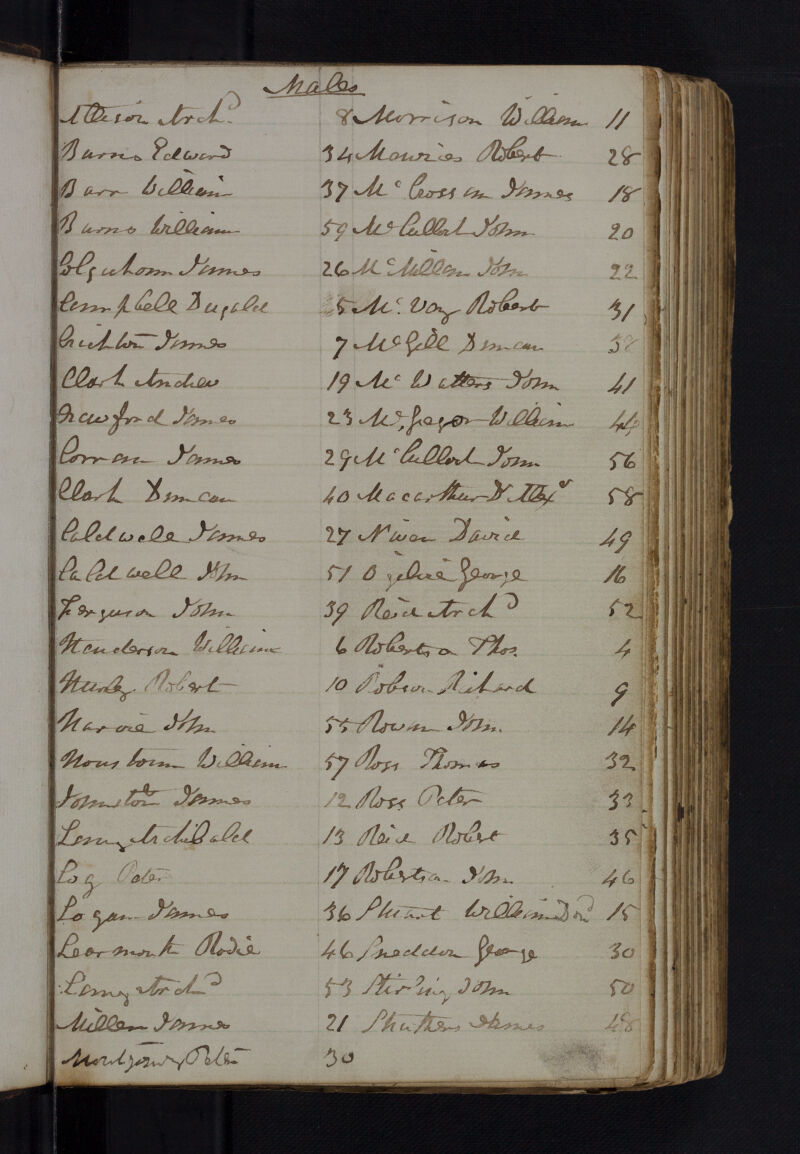 Males
Allison Archd. 8 Morrison William 11
Burns Edward 34 Menzies Robert 28
Barr William 37 McCrossan James 18
Burns William 59 McCulloch John 20
Colquhoun James 26 McMillan John 22
Campbell Dugald 5 McVey Robert 31
Crichton James 7 McGill Duncan 38
Clark Andrew 19 McWatters John 41
Crawford James 23 McGregor William 44
Corran James 29 McCulloch John 56
Clark Duncan 40 Macarthur D Alexr 58
Caldwell James 27 Niven David 49
Caldwell John 51 Ogilvie George 16
Ferguson John 39 Reid Archd 52
Henderson William 6 Robertson Thos. 4
Robert 10 Robson Richard 9
Harvie John 55 Rowan John 14
Houstoun William 57 Ross Thomas 32
Johnston James 12 Ross Peter 33
Lang Archibald 13 Reid Robert 35
Peter 17 Robertson John 46
Logan James 36 Stuart William 15
Learmonth Rodie 46 Sneddon George 30
Lang Archd 53 Stirling John 50
Millan James 21 Struthers James 48
Montgomery Peter 30